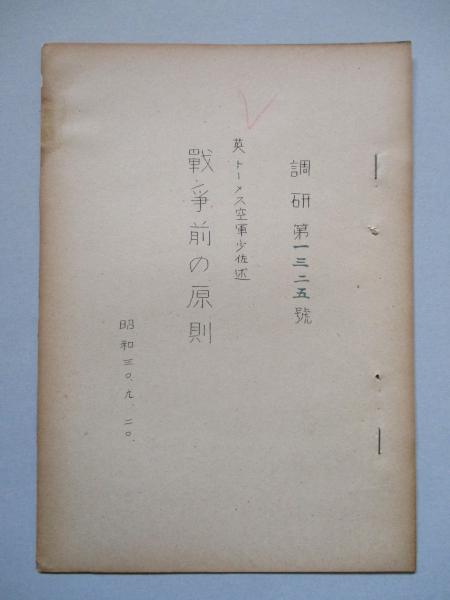 調研第一三二五號
英トーメス空軍少佐述
戰爭前の原則
昭和三〇、九、二〇、